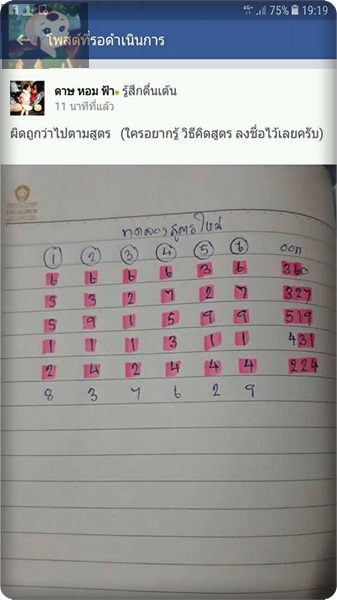 4G+ 75% 19:19
โพสต์ที่รอดำเนินการ
ดาษ หอม ฟ้า รู้สึกตื่นเต้น
11 นาทีที่แล้ว
ผิดถูกว่าไปตามสูตร (ใครอยากรู้ วิธีคิดสูตร ลงชื่อไว้เลยครับ)
EXCALIBUR
ทดลองสูตรใหม่
1 2 3 4 5 6 ออก
6 6 6 6 3 6 360
3 3 2 7 2 7 327
5 9 1 5 9 9 519
1 1 1 3 1 1 431
2 4 2 4 4 4 224
8 3 7 6 2 9